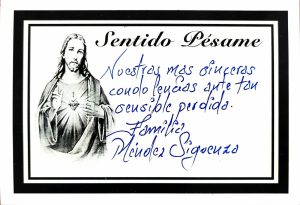 Sentido Pésame
Nuestras mas sinceras
condolencias ante tan
sensible perdida.
Familia
Méndez Sigüenza